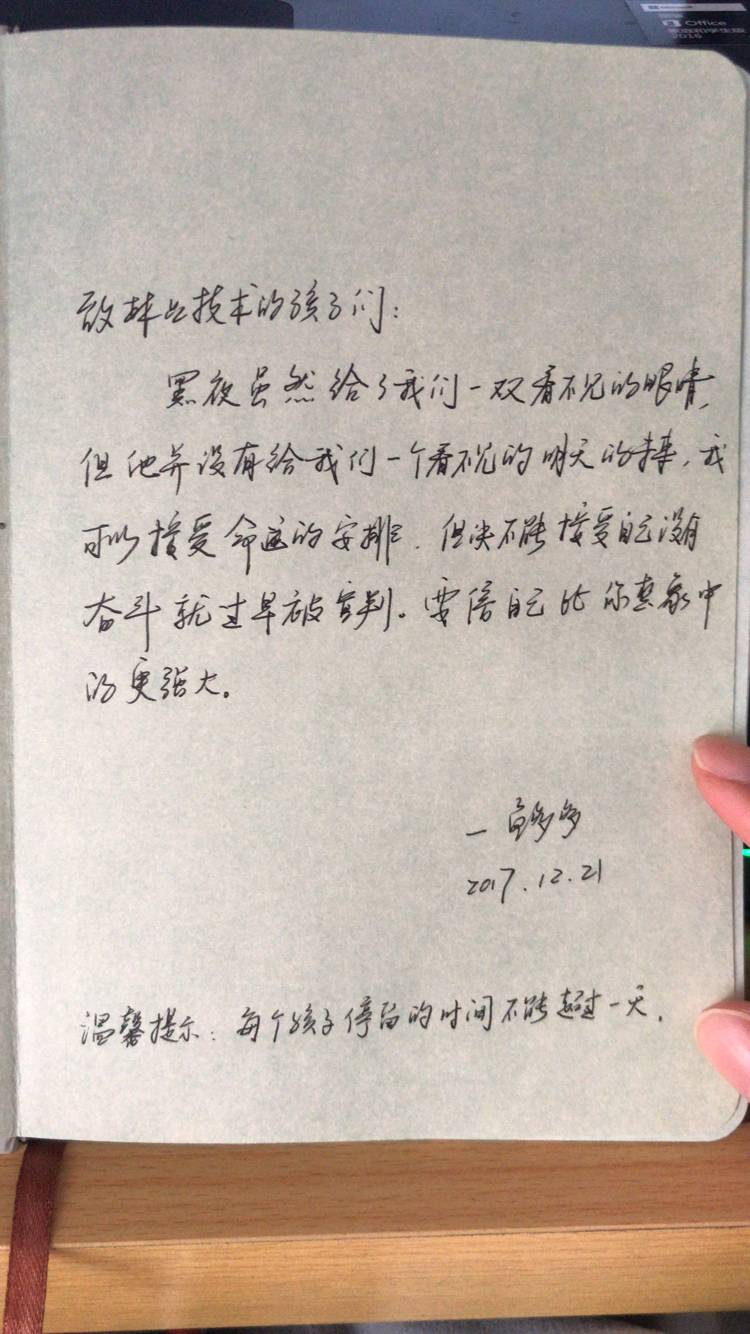 Office
2016
致林业技术的孩子们:
黑夜虽然给了我们一双看不见的眼睛,
但他并没有给我们一个看不见的明天的未来,我
可以接受命运的安排,但决不能接受自己没有
奋斗就过早被宣判。要信自己比你想象中
的更强大。
一 多多
2017.12.21
温馨提示:每个孩子停留的时间不能超过一天.